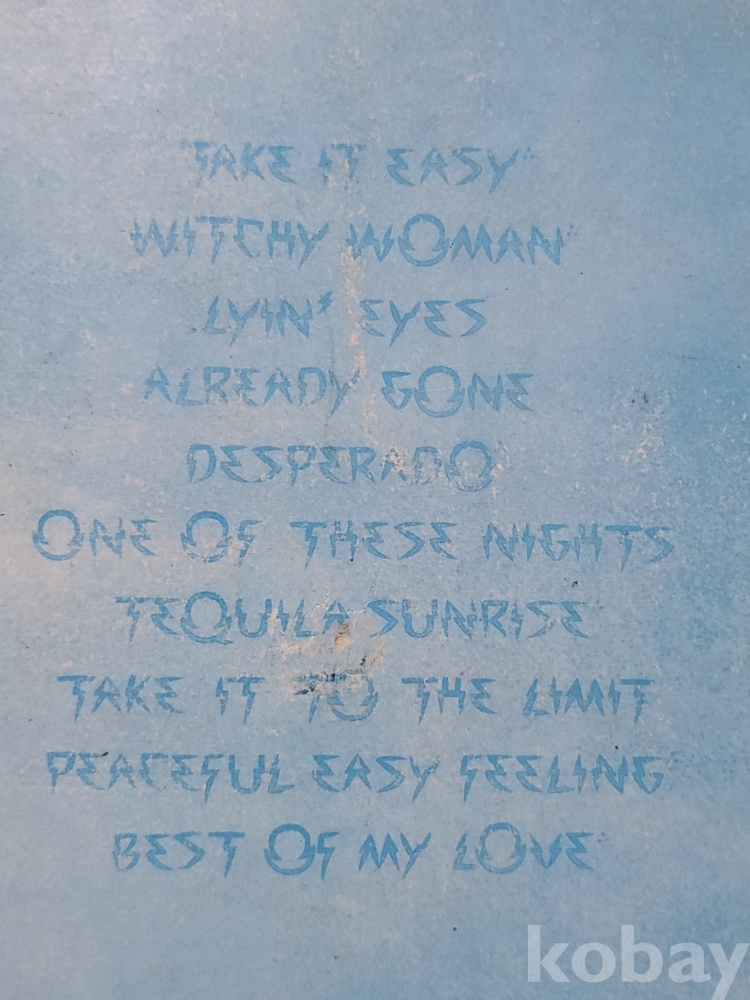 TAKE IT EASY
WITCHY WOMAN
LYIN' EYES
ALREADY GONE
DESPERADO
ONE OF THESE NIGHTS
TEQUILA SUNRISE
TAKE IT TO THE LIMIT
PEACEFUL EASY FEELING
BEST OF MY LOVE
kobay